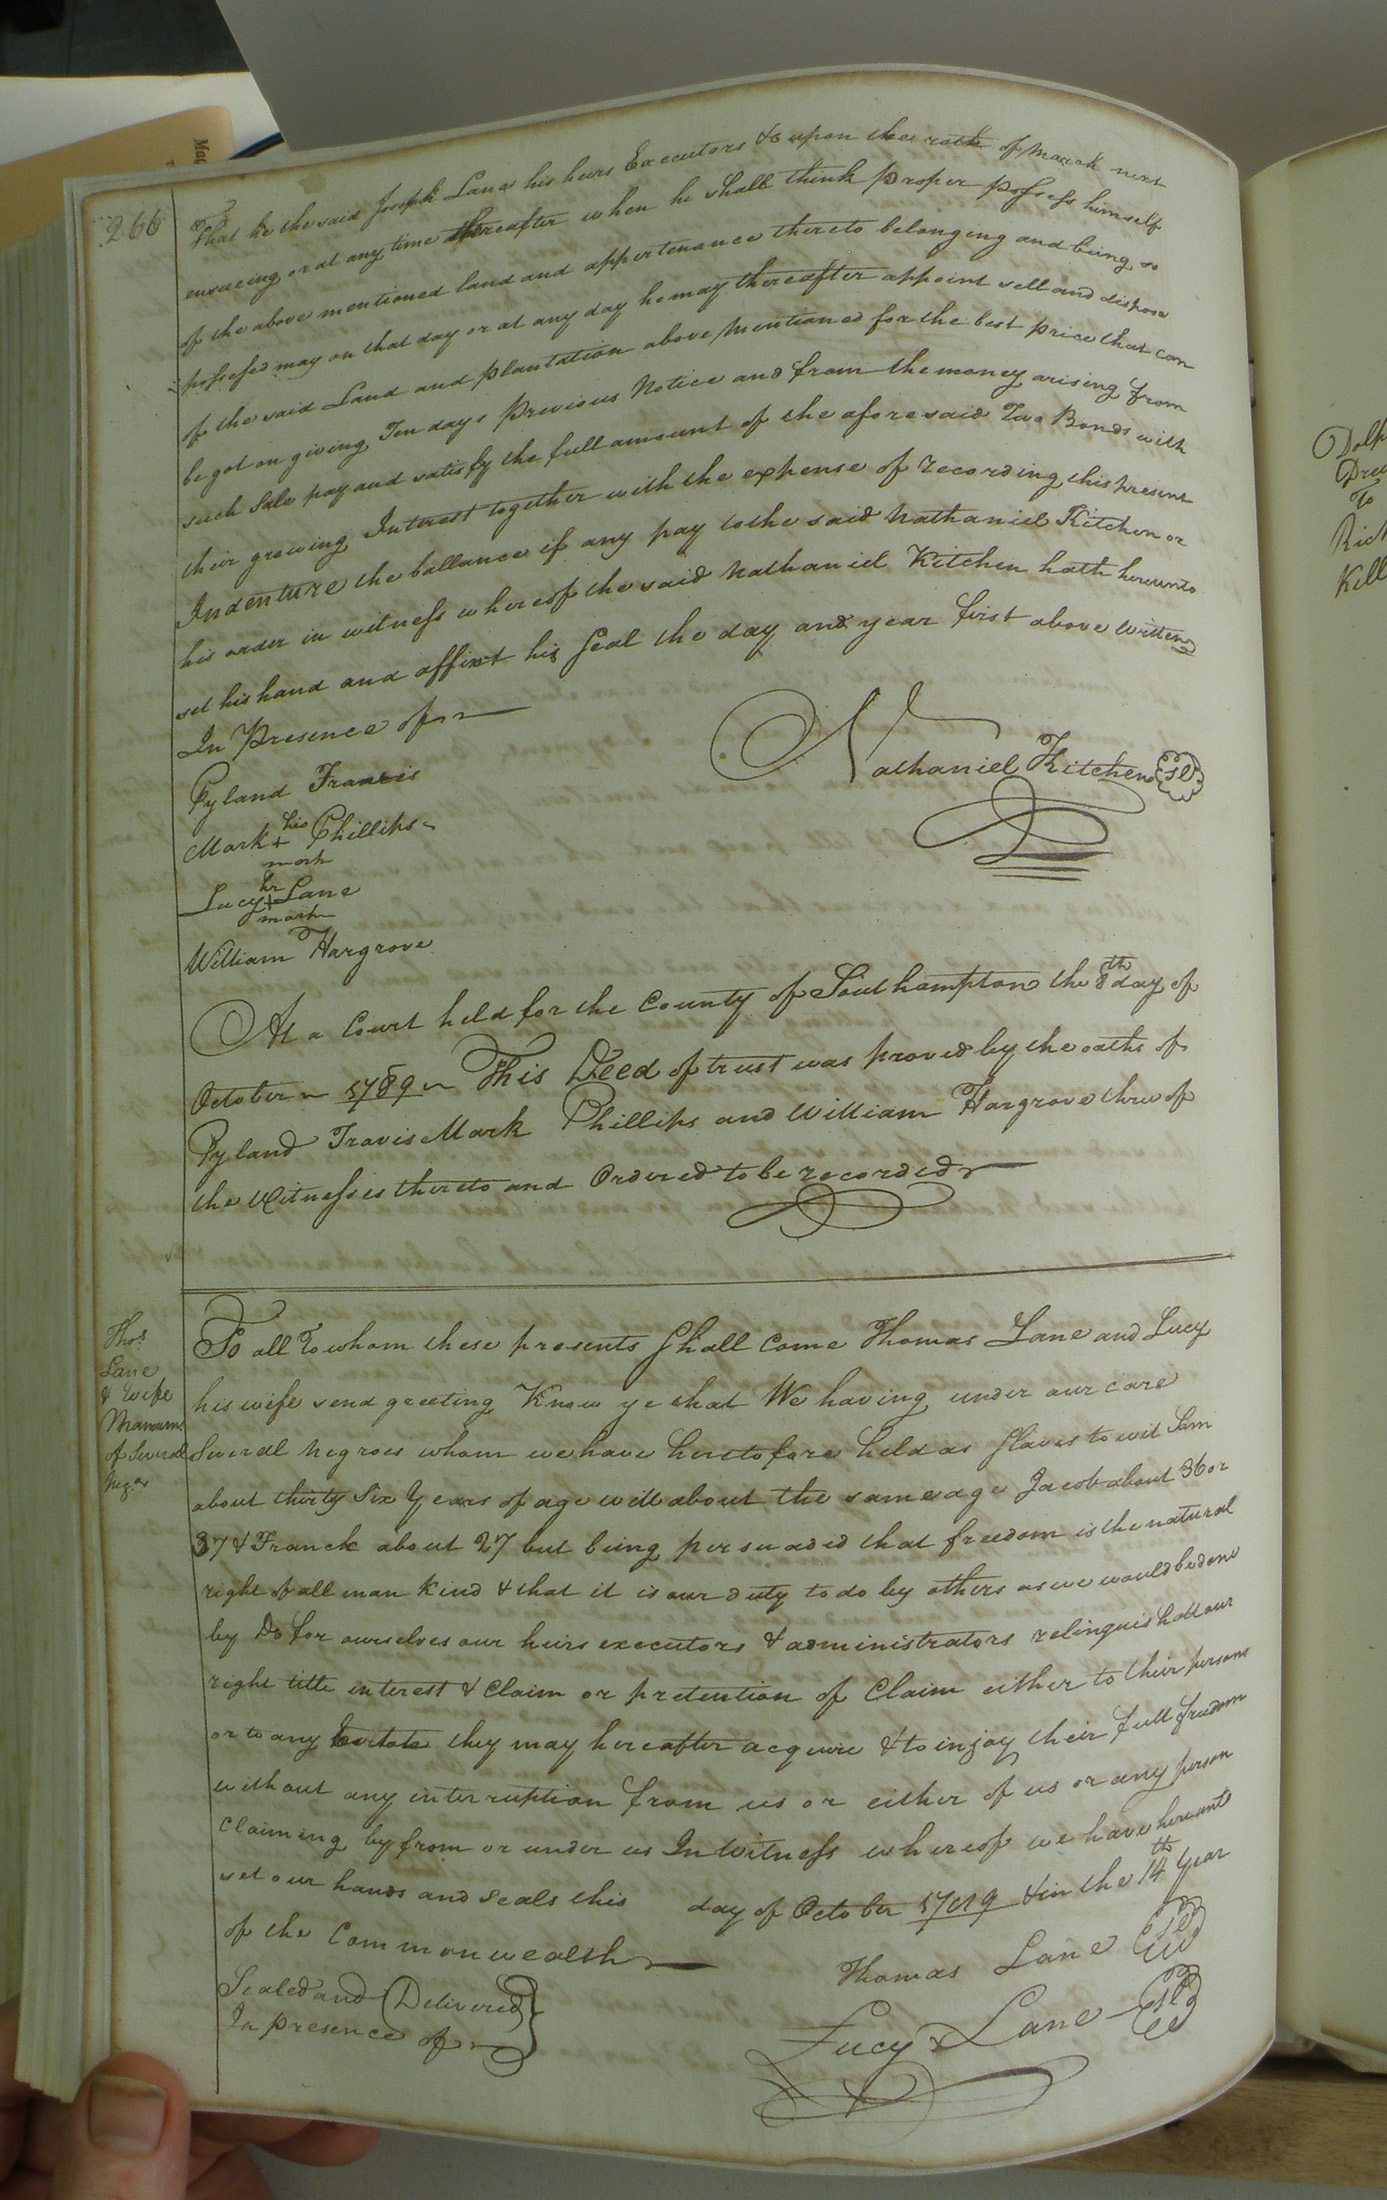 266
That he the said Joseph Lane his heirs Executors &c upon the of March next
ensueing or at any time thereafter when he shall think proper possess himself
of the above mentioned land and appertenance thereto belonging and being so
possesed may on that day or at any day he may thereafter appoint sell and dispose
of the said Land and plantation above mentioned for the best price that can
be got on giving Ten days Previous Notice and from the money arising from
such Sale pay and satisfy the full amount of the aforesaid Two Bonds with
their growing Interest together with the expense of recording this present
Indenture the ballance if any pay to the said Nathaniel Kitchen or
his order in witness whereof the said Nathaniel Kitchen hath hereunto
set his hand and affixt his Seal the day and year first above written
In Presence of
Nathaniel Kitchen Sl
Pyland Francis
his
Mark + Phillips
mark
hr
Lucy + Lane
mark
William Hargrove
At a Court held for the County of Southampton the 8th day of
October 1789 This Deed of trust was proved by the oaths of
Pyland Travis Mark Phillips and William Hargrove three of
the Witnesses thereto and Ordered to be recorded
Thos
Lane
& Wife
Manum
of Severall
Negos
To all To whom these presents Shall Come Thomas Lane and Lucy
his wife send greeting Know ye that We having under our care
Several Negroes whom we have heretofore held as Slaves to wit Sam
about thirty Six Years of age will about the same age Jacob about 36 or
37 & Franck about 27 but being persuaded that freedom is the natural
right of all man kind & that it is our duty to do by others as we would be done
by Do for ourselves our heirs executors & administrators relinquish all our
right title interest & Claim or pretention of Claim either to their persons
or to any Estate they may hereafter acquire & to injoy their full freedom
without any interruption from us or either of us or any person
Claiming by from or under us In Witness whereof we have hereunto
set our hands and seals this day of October 1789 & in the 14th Year
of the Commonwealth
Thomas Lane Sl
Sealed and Delivered
In presence of
Lucy + Lane Sl
Dolp
Drew
To
Rich
Kill